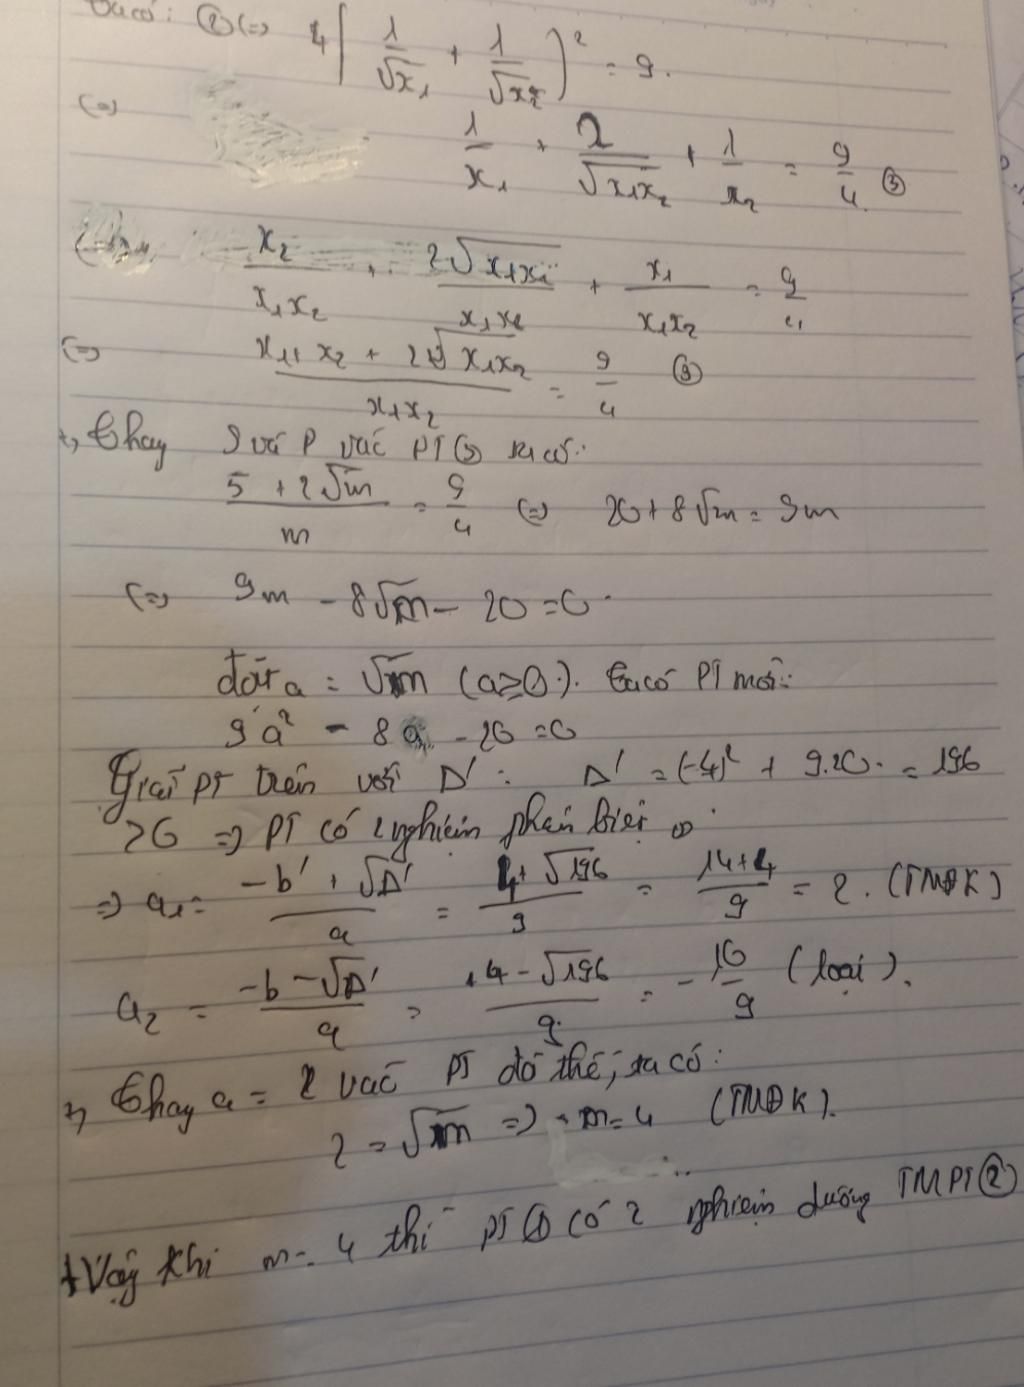 Ta có: ② (=) 4(1/√x₁ + 1/√x₂)² = 9.
(=) 1/x₁ + 2/√x₁x₂ + 1/x₂ = 9/4 ③
x₂/x₁x₂ + 2√x₁x₂/x₁x₂ + x₁/x₁x₂ = 9/4
(=) x₁+ x₂ + 2√x₁x₂/x₁x₂ = 9/4 ③
+, Thay S và P vào PT ③ ta có:
5 + 2√m/m = 9/4 (=) 20 + 8√m = 9m
(=) 9m - 8√m - 20 = 0.
đặt a = √m (a≥0). Ta có PT mới:
9a² - 8a - 20 = 0
Giải PT trên với Δ' : Δ' = (-4)² + 9.20. = 196
>0 => PT có 2 nghiệm phân biệt
=> a₁ = -b' + √Δ'/a = 4+ √196/9 = 14+4/9 = 2. (TMĐK)
a₂ = -b - √Δ'/a = 4 - √196/9 = -10/9 (loại).
+, Thay a = 2 vào PT đó thế, ta có:
2 = √m => m = 4 (TMĐK).
+ Vậy khi m = 4 thì PT ① có 2 nghiệm dương TMPT ②